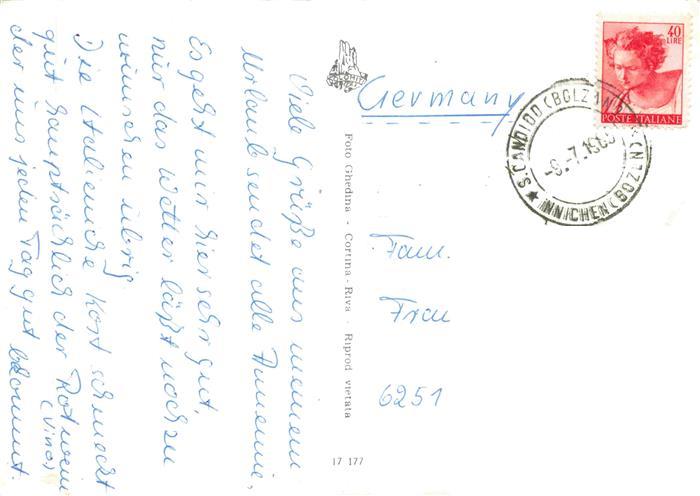 Viele Grüße aus meinem
Urlaub sendet alle Annemie,
Es geht mir hier sehr gut,
nur das Wetter läßt noch zu
wünschen übrig
Die Italienische Kost schmeckt
gut hauptsächlich der Rotwein
(Vino)
der uns jeden Tag gut bekommt.
Foto Ghedina - Cortina - Riva - Riprod vietata
17 177
Germany
40
LIRE
POSTE ITALIANE
S. CANDIDO (BOLZANO)
INNICHEN (BOZEN)
Fam.
Frau
6251